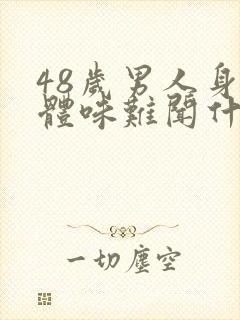 48歲男人身
體味難聞什
一切塵空